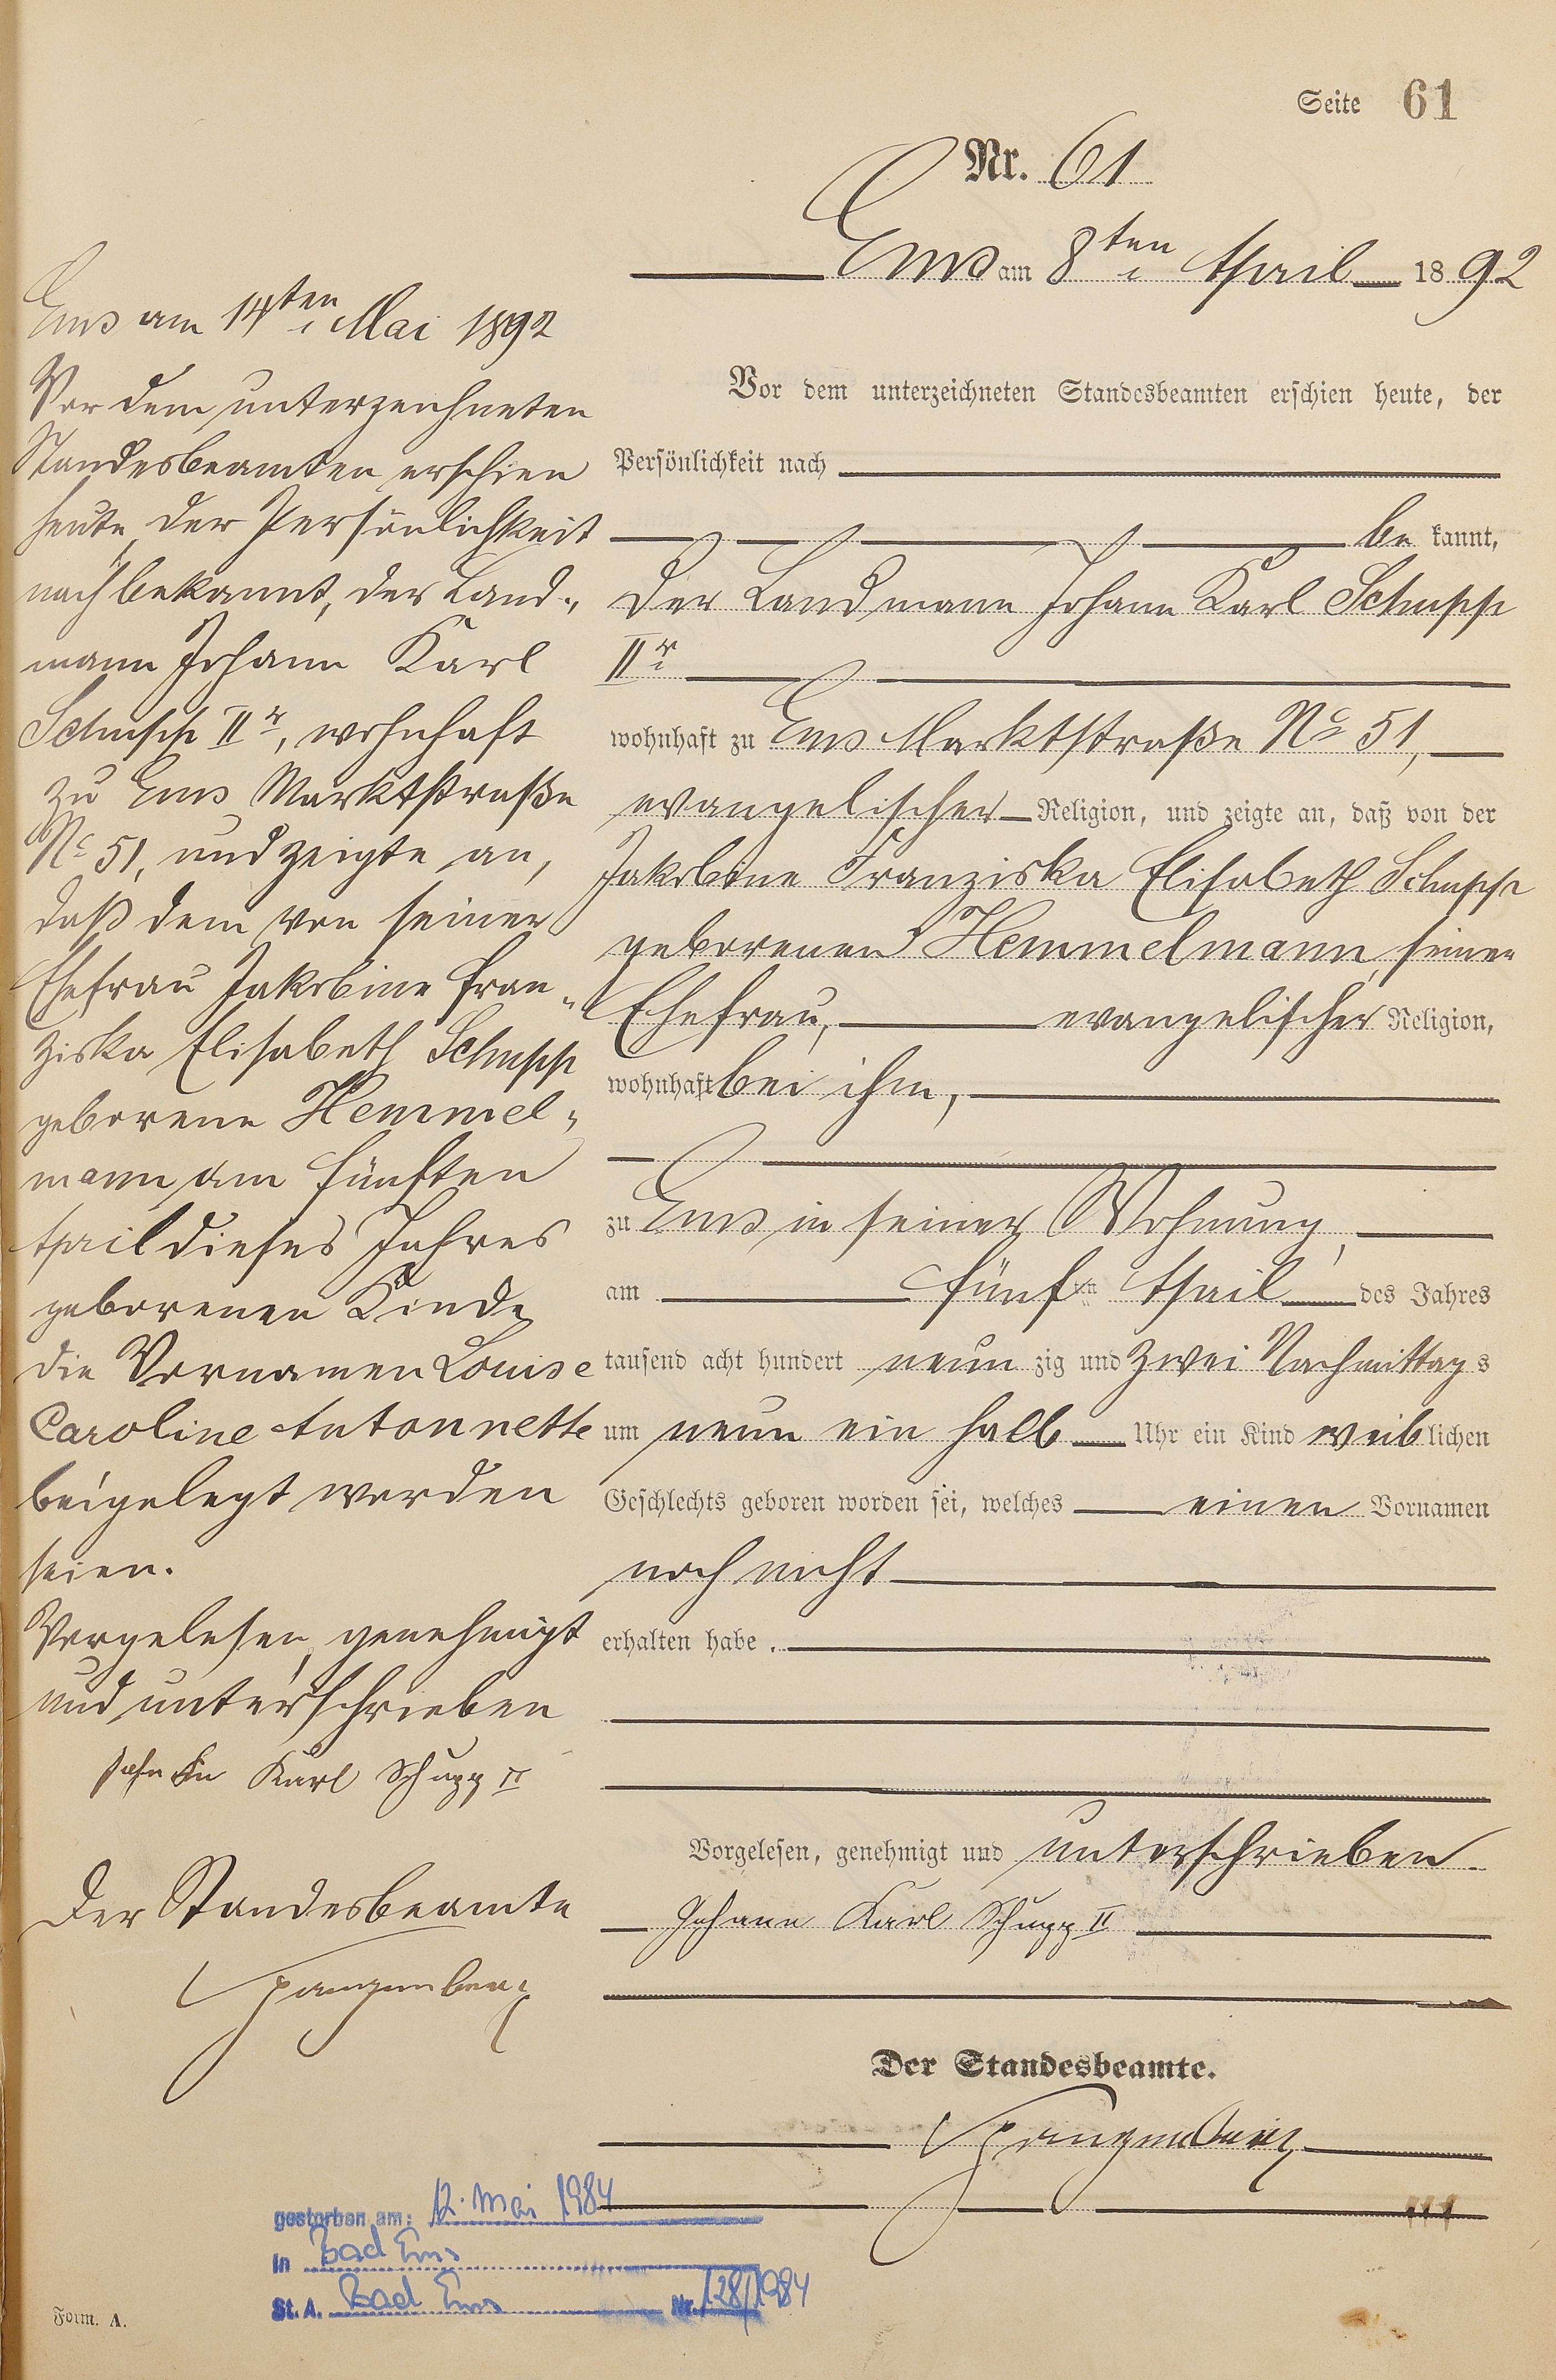 Seite 61
Nr. 61
Ems am 8ten April 1892
Vor dem unterzeichneten Standesbeamten erschien heute, der
Persönlichkeit nach
be kannt,
der Landmann Johann Karl Schupp
IIr
wohnhaft zu Ems Marktstraße No 51,
evangelischer Religion, und zeigte an, daß von der
Jakobine Franziska Elisabeth Schupp
geborenen Hemmelmann, seiner
Ehefrau, evangelischer Religion,
wohnhaft bei ihm,
zu Ems in seiner Wohnung,
am fünften April des Jahres
tausend acht hundert neun zig und zwei Nachmittags
um neun ein halb Uhr ein Kind weiblichen
Geschlechts geboren worden sei, welches einen Vornamen
noch nicht
erhalten habe.
Vorgelesen, genehmigt und unterschrieben
Johann Karl Schupp II
Der Standesbeamte.
Spangenberg
Ems am 14ten Mai 1892
Vor dem unterzeichneten
Standesbeamten erschien
heute, der Persönlichkeit
nach bekannt, der Land-
mann Johann Karl
Schupp IIr, wohnhaft
zu Ems Marktstraße
No 51, und zeigte an,
daß dem von seiner
Ehefrau Jakobine Fran-
ziska Elisabeth Schupp
geborene Hemmel-
mann am fünften
April dieses Jahres
geborenen Kinde
die Vornamen Louise
Caroline Antonnette
beigelegt worden
seien.
Vorgelesen, genehmigt
und unterschrieben
Johann Karl Schupp II
Der Standesbeamte
Spangenberg
gestorben am: 12. Mai 1984
in Bad Ems
St. A. Bad Ems Nr. 128/1984
Form. A.